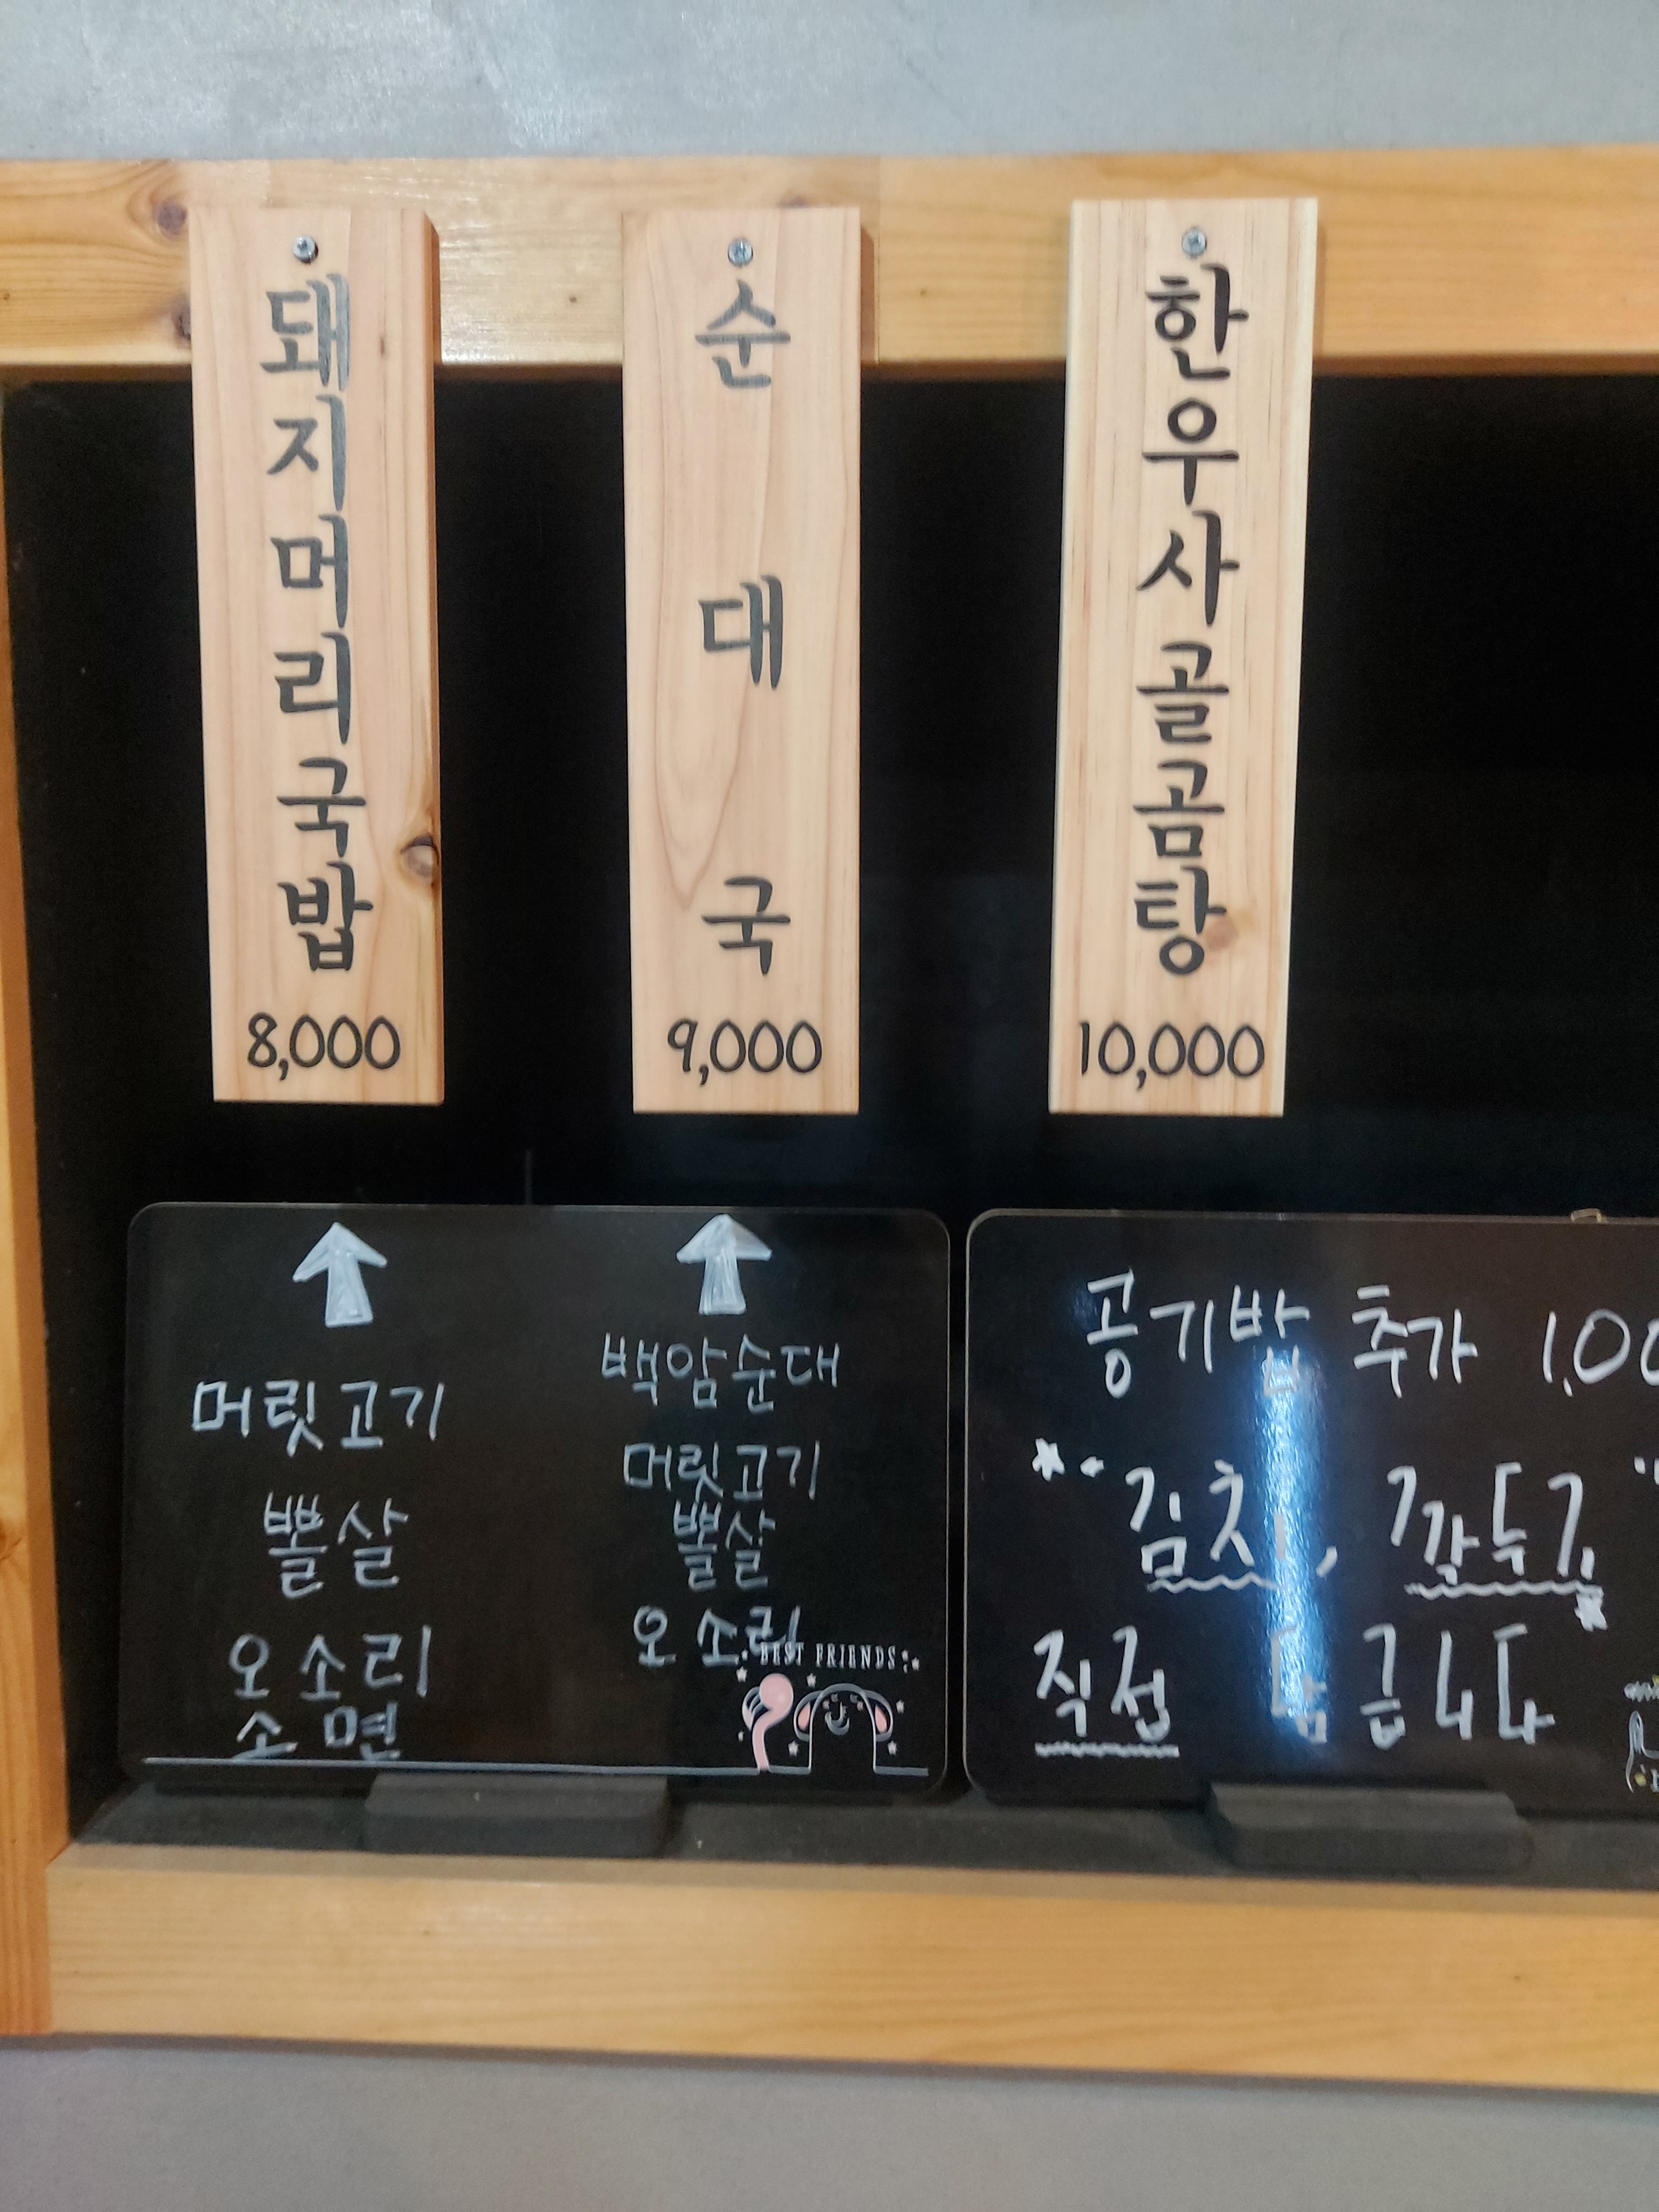 돼지머리국밥
8,000
순대국
9,000
한우사골곰탕
10,000
머릿고기
뽈살
오소리
소면
백암순대
머릿고기
뽈살
오소리
BEST FRIENDS
공기밥 추가 1,00
"김치, 깍두기"
직접 담급니다